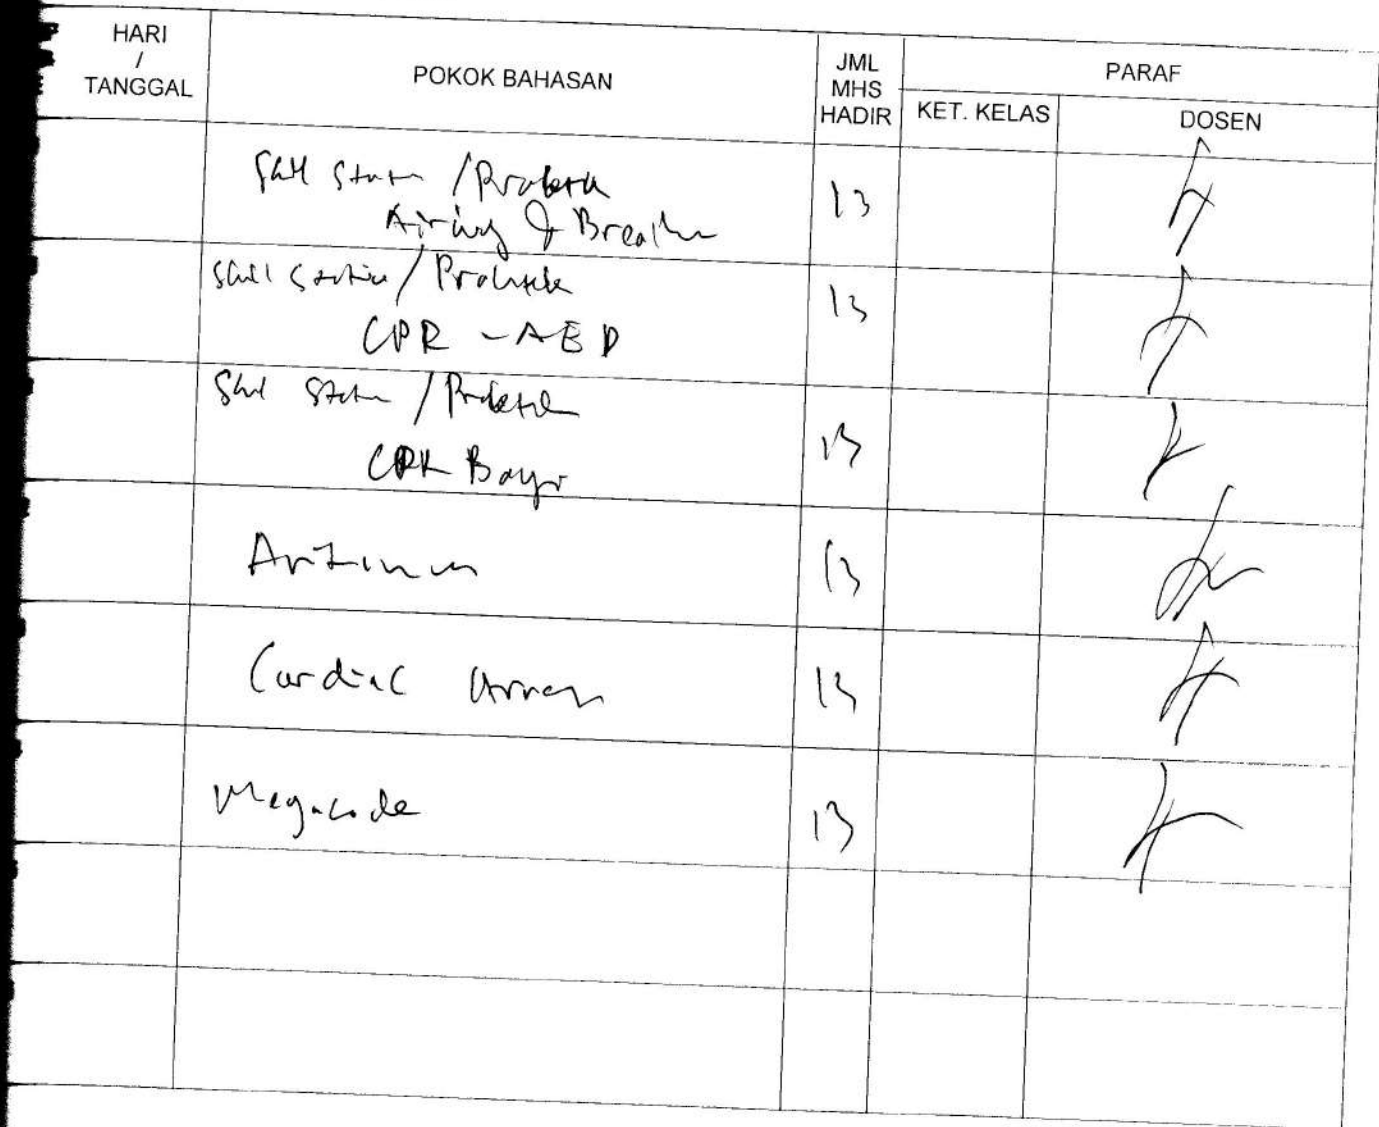 HARI
/
TANGGAL
POKOK BAHASAN
JML
MHS
HADIR
PARAF
KET. KELAS
DOSEN
Skill Station / Praktek
Airway & Breathing
13
Skill Station / Praktek
CPR - AED
13
Skill Station / Praktek
CPR Bayi
13
13
Cardiac Arrest
13
Megacode
13